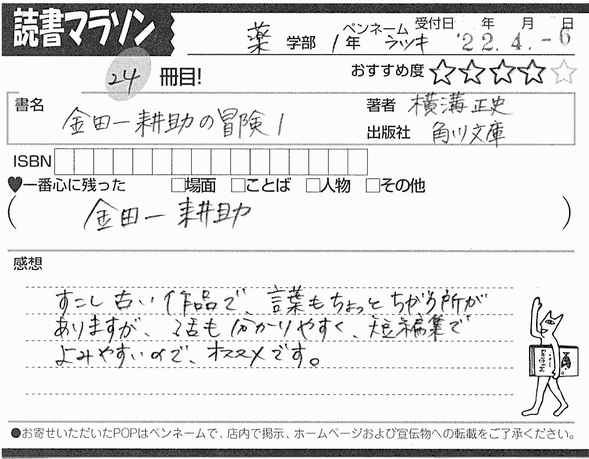 読書マラソン
薬 学部 1年 ペンネーム ラッキ 受付日 年 月 日 '22.4.-6
24 冊目! おすすめ度 ★★★★☆
書名 金田一耕助の冒険1 著者 横溝正史
出版社 角川文庫
ISBN
♥一番心に残った □場面 □ことば □人物 □その他
(金田一耕助)
感想
すこし古い作品で、言葉もちょっとちがう所が
ありますが、話も分かりやすく、短編集で
よみやすいので、オススメです。
●お寄せいただいたPOPはペンネームで、店内で掲示、ホームページおよび宣伝物への転載をご了承ください。